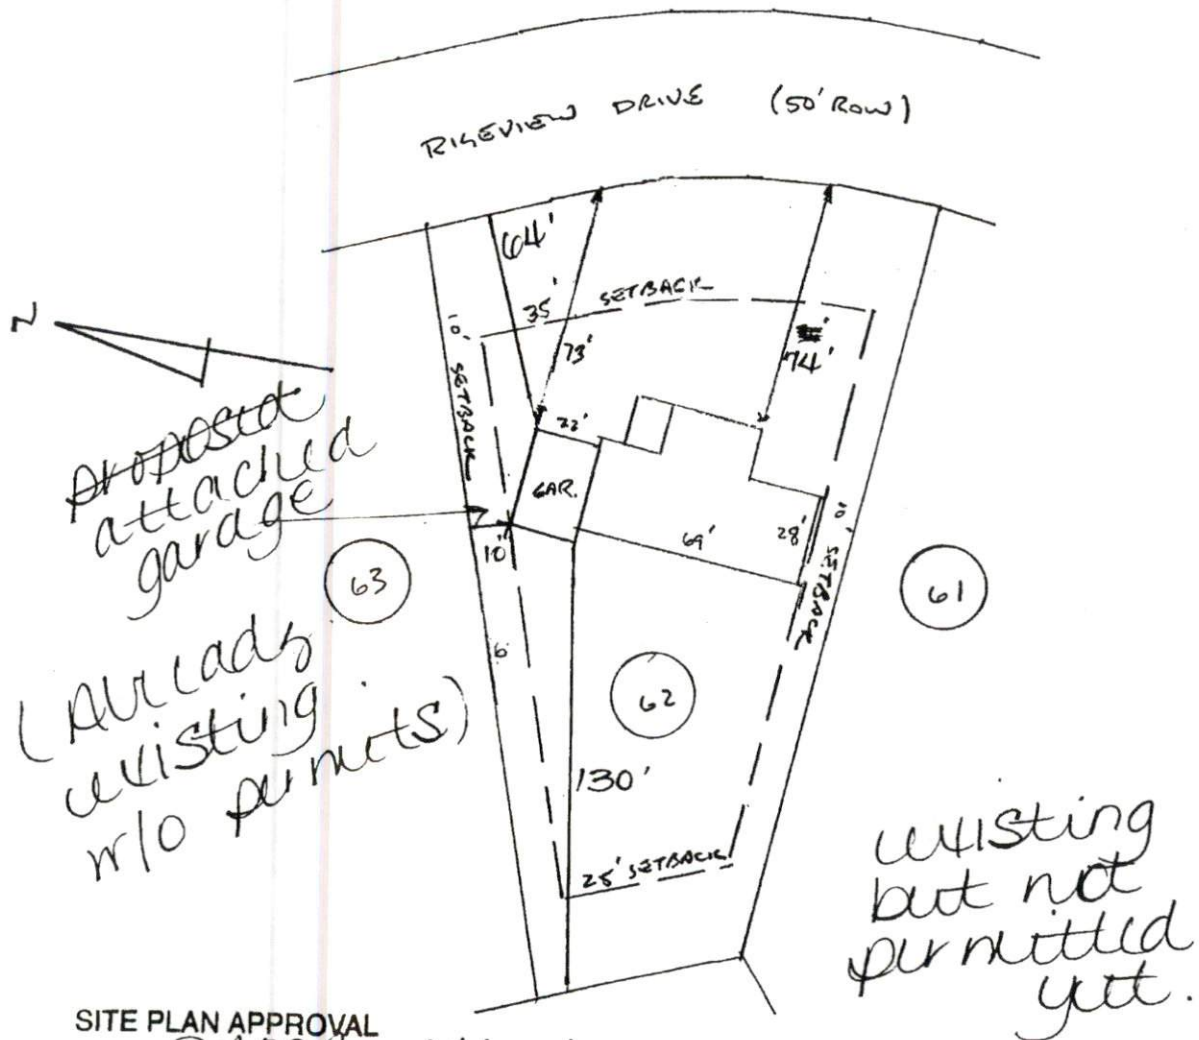 RIGEVIEW DRIVE (50' ROW)
64'
35' SETBACK
10' SETBACK
73'
74'
N
22'
GAR.
proposed
attached
garage
10'
69'
28'
10' SETBACK
63
61
62
(Already
existing
w/o permits)
130'
25' SETBACK
existing
but not
permitted
yet.
SITE PLAN APPROVAL